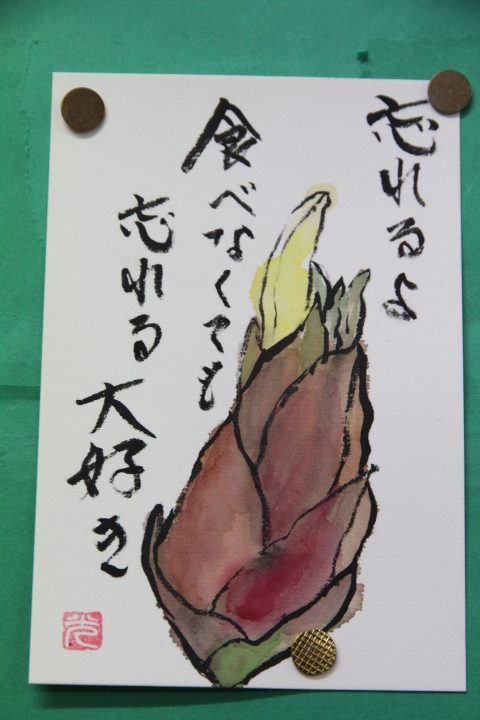 忘れるよ
食べなくても
忘れる大好き
光